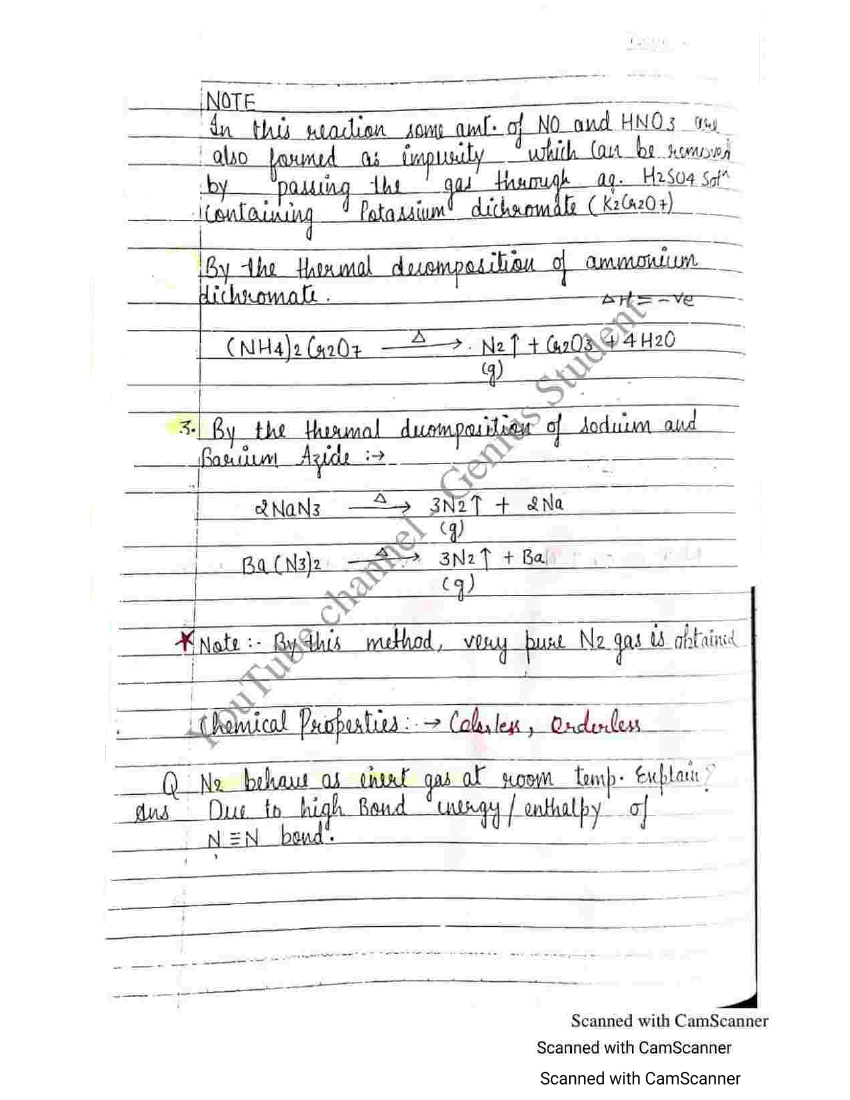 NOTE
In this reaction some amt. of NO and HNO3 are
also formed as impurity which can be removed
by passing the gas through aq. H2SO4 Solⁿ
Containing Potassium dichromate (K2Cr2O7)
By the thermal decomposition of ammonium
dichromate.
ΔH = -ve
(NH4)2Cr2O7 —Δ→ N2↑ + Cr2O3 + 4H2O
(g)
3. By the thermal ducomposition of soduim and
Barium Azide :→
2NaN3 —Δ→ 3N2↑ + 2Na
(g)
Ba(N3)2 —Δ→ 3N2↑ + Ba
(g)
★ Note :- By this method, very pure N2 gas is obtained
Chemical Properties: → Colorless, Orderless
Q N2 behave as inert gas at room temp. Explain?
Ans Due to high Bond energy/enthalpy of
N≡N bond.
YouTube channel - Genius Student
Scanned with CamScanner
Scanned with CamScanner
Scanned with CamScanner